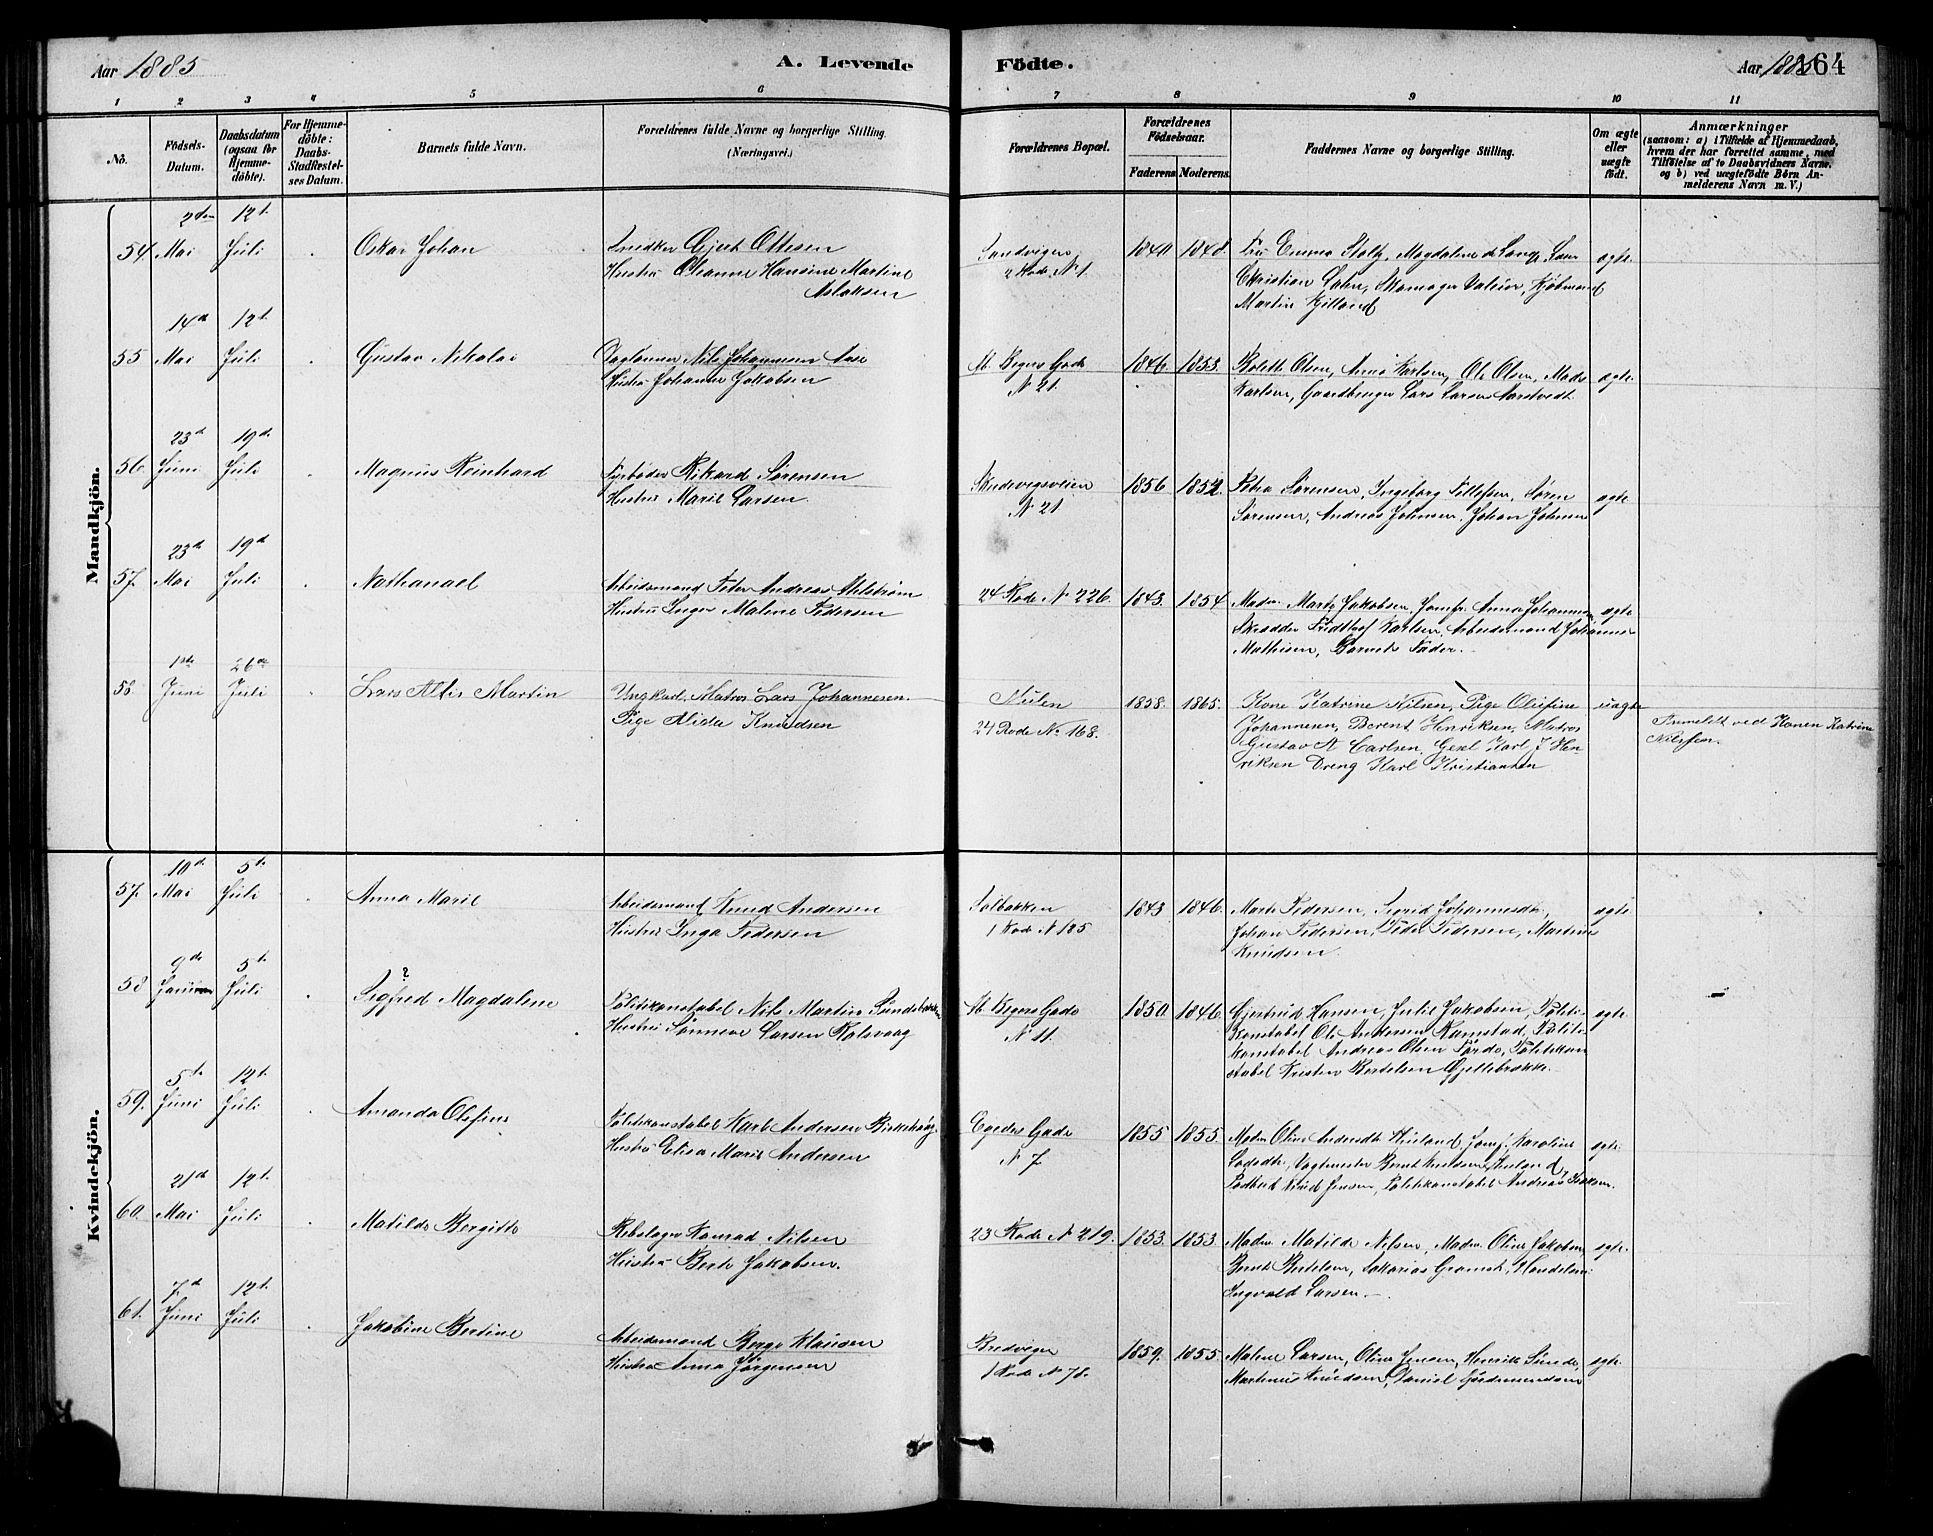 Aar 1885
A. Levende
Födte.
Aar 1885
164
1 2 3 4 5 6 7 8 9 10 11
No.
Födsels-Datum.
Daabsdatum (ogsaa for Hjemme-döbte).
For Hjemme-döbte: Daabs-Stadfæstel-ses Datum.
Barnets fulde Navn.
Forældrenes fulde Navne og borgerlige Stilling.
(Næringsvei.)
Forældrenes Bopæl.
Forældrenes Födselsaar.
Faderens Moderens.
Faddernes Navne og borgerlige Stilling.
Om ægte eller uægte födt.
Anmærkninger
(saasom: a) i Tilfælde af Hjemmedaab, hvem der har forrettet samme, med Tilföielse af to Daabsvidners Navne, og b) ved uægtefödte Börn An-melderens Navn m. V.)
Mandkjön.
54. 2den Mai 12t. Juli Oskar Johan
Snedker Gjert Ottesen
Hustru Oleanne Hansine Martine
Aslaksen
Sandvigen
2 Rode N. 1
1840 1848.
Fru Emma Stoltz, Magdalene
Christian Skomager Kjøbmand
Martin Kjilland
ægte
55 14de Mai 12t. Juli Gustav Nikolai
Daglønner Nils Johannesen
Hustru Johanne Jakobsen
N 21.
1846. 1853.
Olsen, Anna Karlsen, Ole Olsen, Mads
Karlsen, Gaardbruger Lars Larsen Aarstvedt.
ægte.
56. 23de Juni 19de Juli Magnus Reinhard
Fyrbøder Rikard Sørensen
Hustru Marie Larsen.
Skudevigsveien
N 21
1856 1852.
Petra Sørensen, Ingeborg Tillefsen, Søren
Sørensen, Andreas Johnsen, Johan Johnsen
ægte
57. 23de Mai 19de Juli Nathanael
Arbeidsmand Peter Andreas Ahlstrøm
Hustru Inger Malene Pedersen
24 Rode N 226.
1843. 1854
Madm Marta Jakobsen, Jomfr. Anna Johannesen
Skrædder Fridthof Karlsen, Arbeidsmand Johannes
Mathisen, Barnets Fader.
ægte
58. 1ste Juni 26de Juli Lars Martin
Ungkarl, Matros Lars Johannesen.
Pige Alida Knudsen
Mulen
24 Rode No 168.
1858. 1865.
Kone Katrine Nilsen, Pige Olufine
Johannesen, Berent Henriksen, Matros
Gustav A Carlsen, Karl J Hen
riksen Dreng Karl Kristiansen
uægte
Anmeldt ved Konen Katrine
Nilssen.
Kvindekjön.
57. 10de Mai 5te Juli Anna Marie
Arbeidsmand Knud Andersen
Hustru Inga Pedersen
Solbakken
1 Rode N 185
1843 1846.
Marta Pedersen, Sigrid Johannesdtr.,
Johan Pedersen, Peder Pedersen, Martinus
Knudsen
ægte
58 9de 5te Juli
?
Sigfred Magdalene
Politikonstabel Nils Martin
Hustru Sønneve Larsen Kalsvaag
N 11.
1850. 1846.
Gjertrud Hansen, Julie Jakobsen, Politi-
konstabel Ole Andersen Ramstad, Politi-
konstabel Andreas Olsen Førde, Politikon
stabel Kristen Bertelsen Gjellebrekke.
ægte.
59. 5te Juni 12t. Juli Amanda Olefine
Politikonstabel Karl Andersen Birkehaug
Hustru Elisa Marie Andersen
Egedes Gade
N 7.
1855 1855.
Madm Oline Andersdtr. Jomf. Karoline
Vagtmester Bernt Knudsen
Postbud Knud Jensen, Politikonstabel Andreas
ægte
60. 21de Mai 12t. Juli Matilda Bergitta
Rebslager Konrad Nilsen
Hustru Berte Jakobsen.
23 Rode N 219.
1853. 1853.
Madm. Matilde Nilsen, Madm. Oline Jakobsen,
Bernt Bertelsen, Sakarias
Ingvald Larsen.
ægte.
61. 7de Juni 12t. Juli Jakobine Bertine
Arbeidsmand Berge Klausen
Hustru Anna Jørgensen
Bredvigen
1 Rode N 71.
1859. 1855.
Malene Larsen, Oline Jensen, Henrik
Martinus Knudsen, Daniel
ægte.